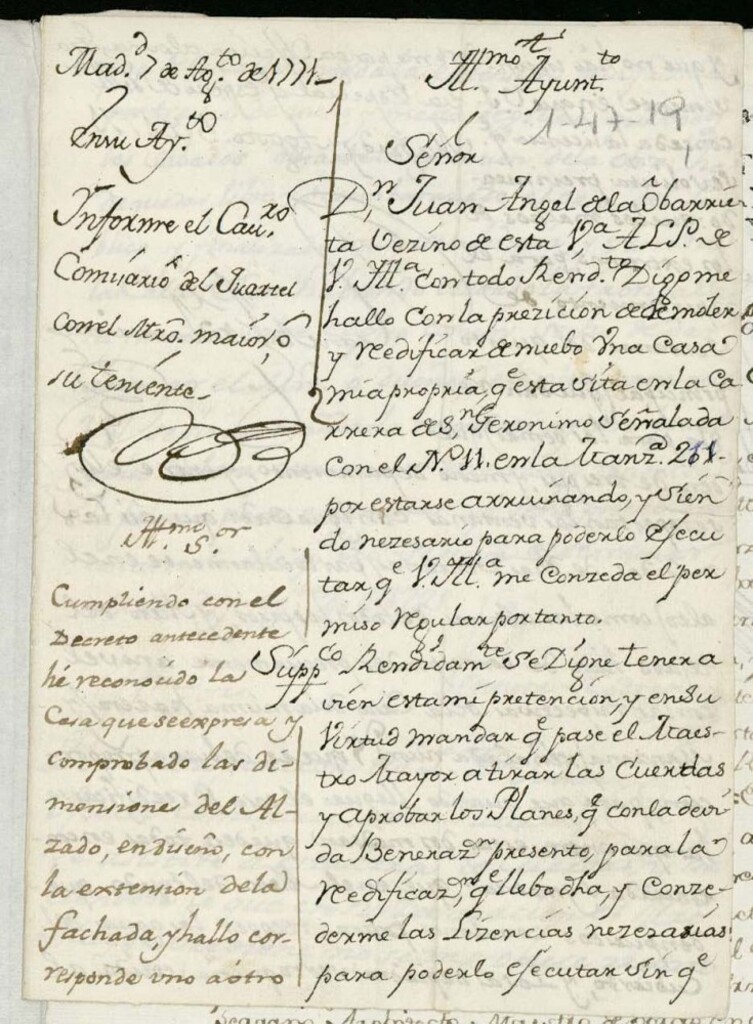 Mad.d 7 de Ag.to de 1771
En su Ay.to
Informe el Cau.ro
Comisario del Quartel
con el Mro. maior, ò
su teniente.
Ill.mo S.or
Cumpliendo con el
Decreto antecedente
hé reconocido la
Casa que se expresa y
comprobado las di-
mensiones del Al-
zado, en diseño, con
la extension de la
fachada, y hallo cor-
responde uno a otro
Ill.mo Ayunt.to
1-47-19
Señor
D.n Juan Angel de la Obarrue
ta Vezino de esta V.a A L P. de
V. Ill.a con todo Rend.to Digo me
hallo con la prezicion de demoler
y Redificar de nuebo Vna Casa
mia propria, q.e esta sita en la Ca
rrera de S.n Geronimo Señalada
con el N.o 11. en la Manz.a 261.
por estarse arruinando, y sien
do nezesario para poderlo ejecu
tar, q.e V. Ill.a me Conzeda el per
miso Regular por tanto.
Supp.co Rendidam.te Se Digne tener a
vien esta mi pretencion, y en Su
Virtud mandar q.e pase el Maes-
tro Mayor a tirar las Cuerdas
y aprobar los Planes, q.e con la devi
da Beneraz.n presento, para la
Redificaz.n q.e llebo dha, y Conze-
derme las Lizencias nezesarias
para poderlo ejecutar sin q.e